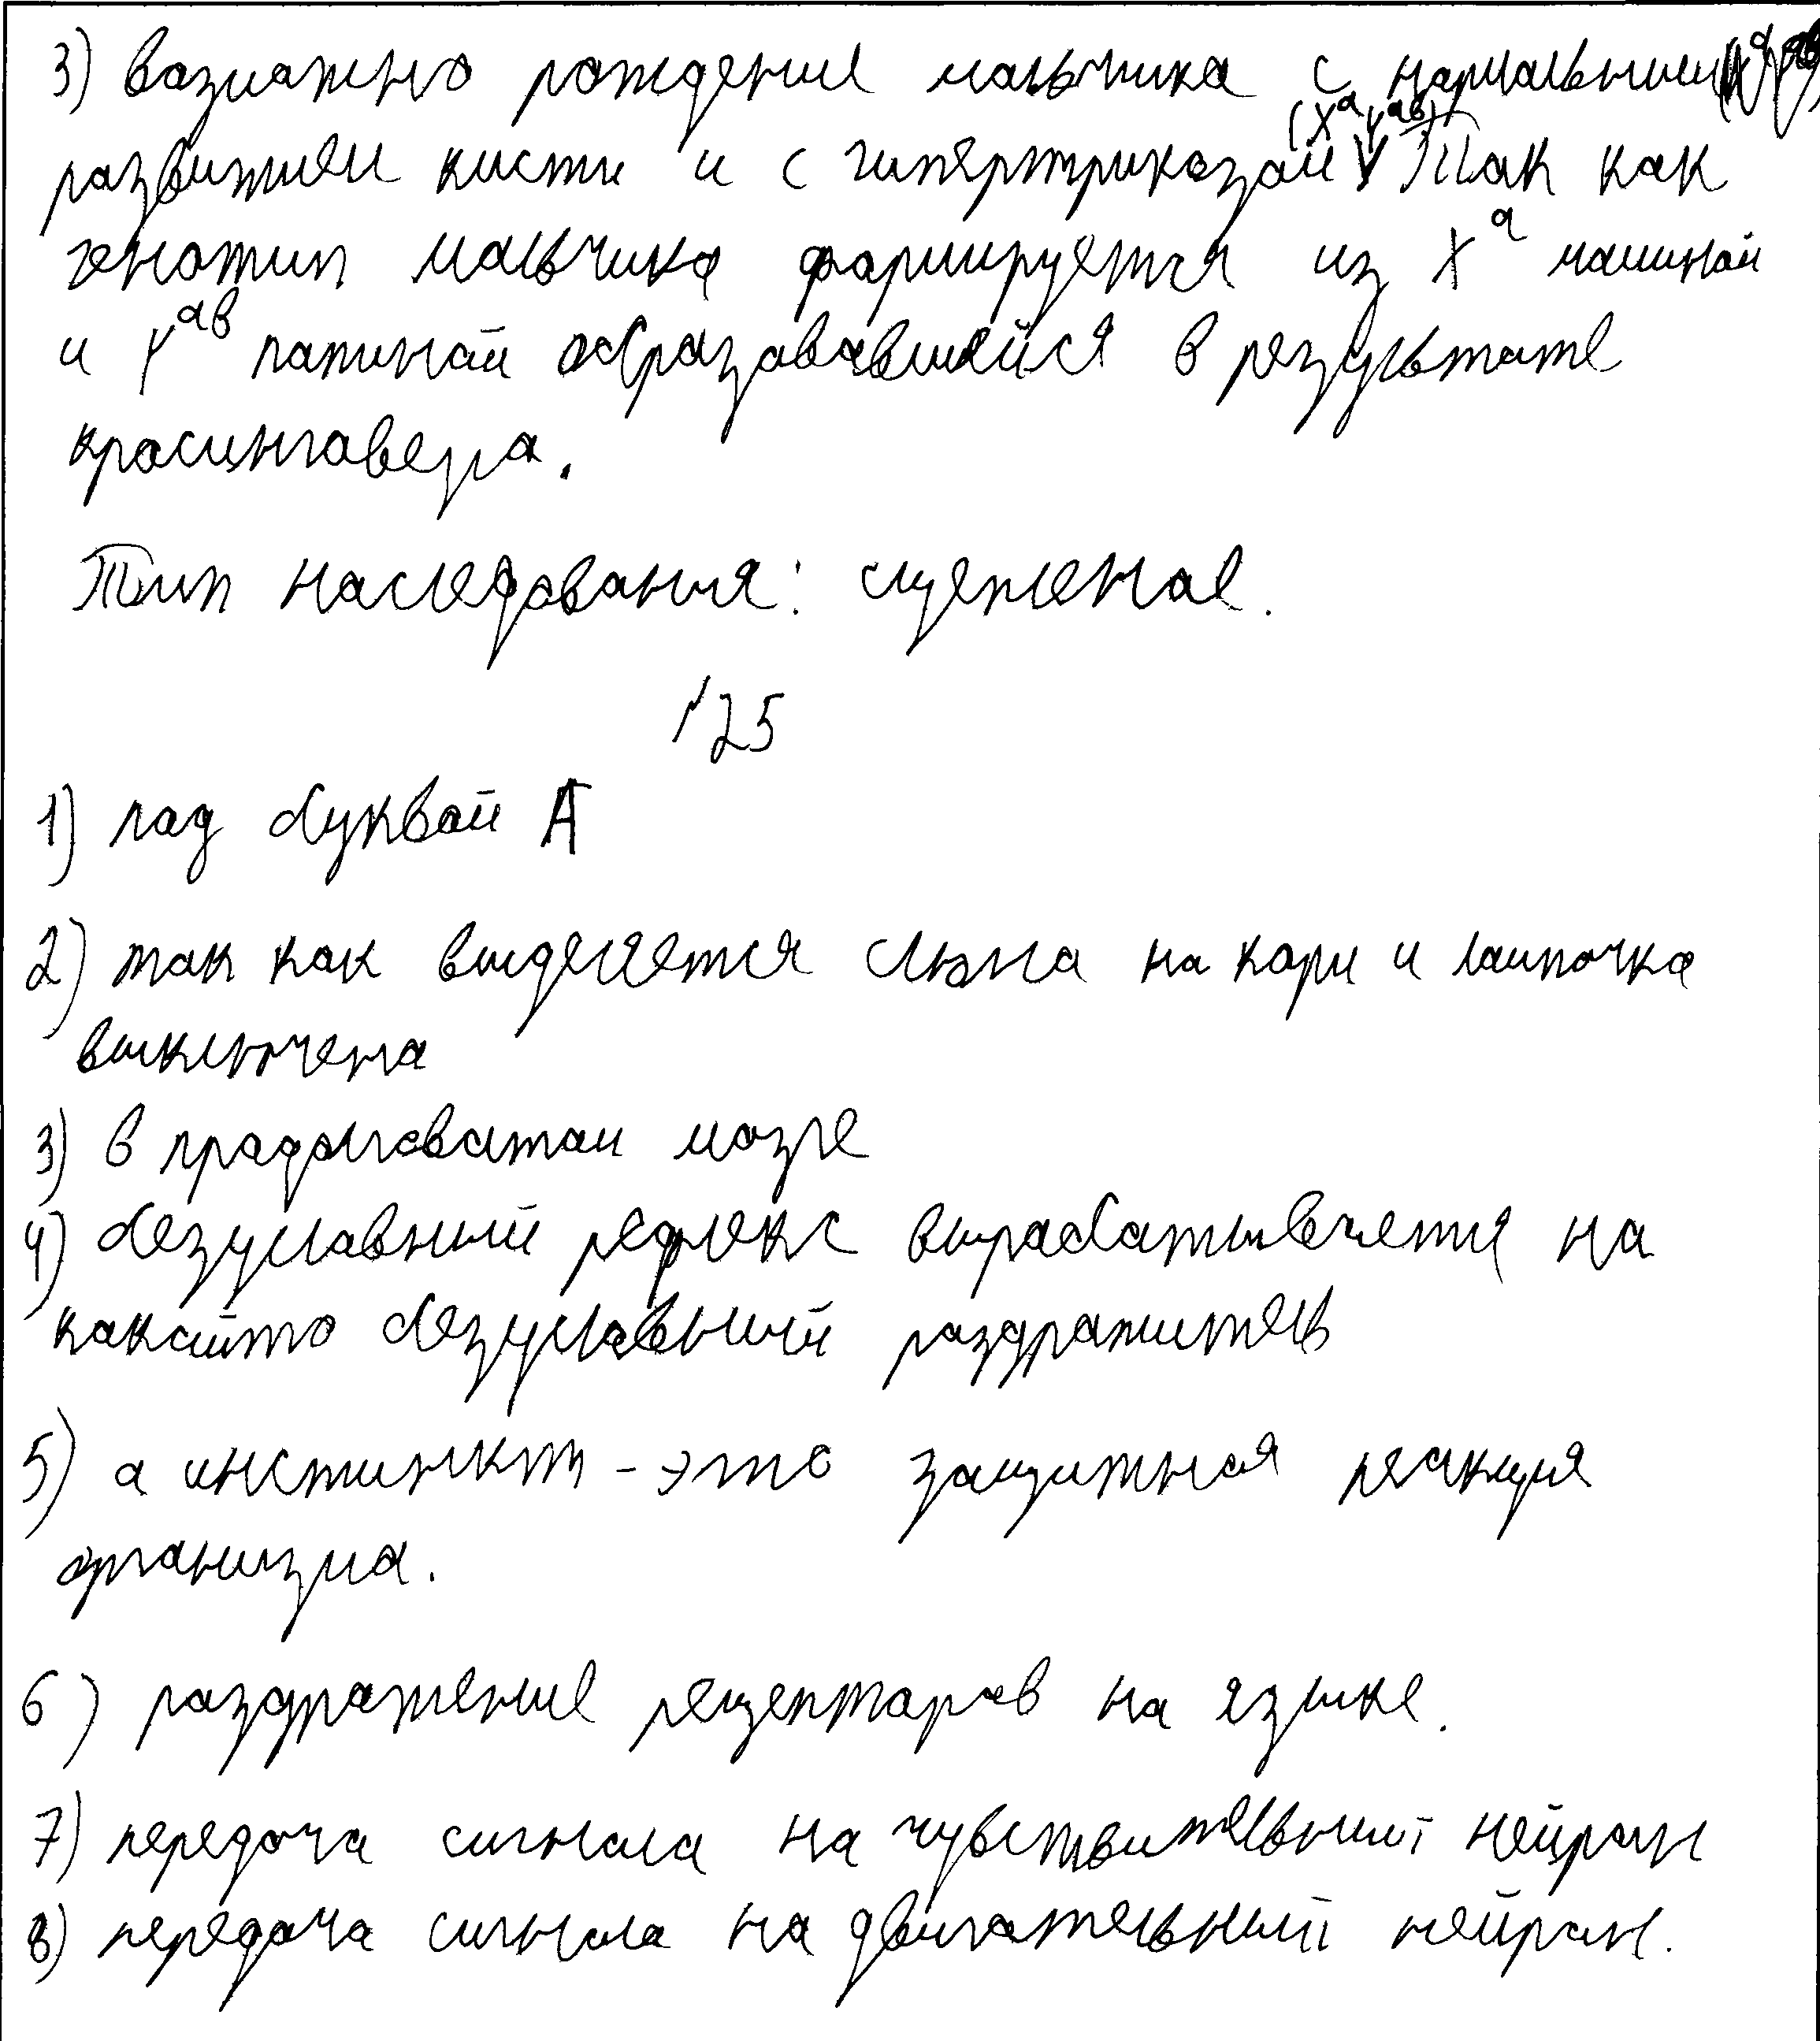 3) возможно рождение мальчика с нормальным
(XᵃYᵃᵇ)
развитием кисти и с гипертрихозом V Так как
генотип мальчика формируется из Xᵃ машиной
и Yᵃᵇ папиной образовавшейся в результате
кросинговера.
Тип наследования: сцеленое.
№25
1) под буквой А
2) так как выделяется слюна на корм и лампочка
выключена
3) в продолговатом мозге
4) безусловный рефлекс вырабатывается на
какойто безусловный раздражитель
5) а инстинкт - это защитная реакция
организма.
6) раздражение рецепторов на языке.
7) передача сигнала на чувствительный нейрон
8) передача сигнала на двигательный нейрон.